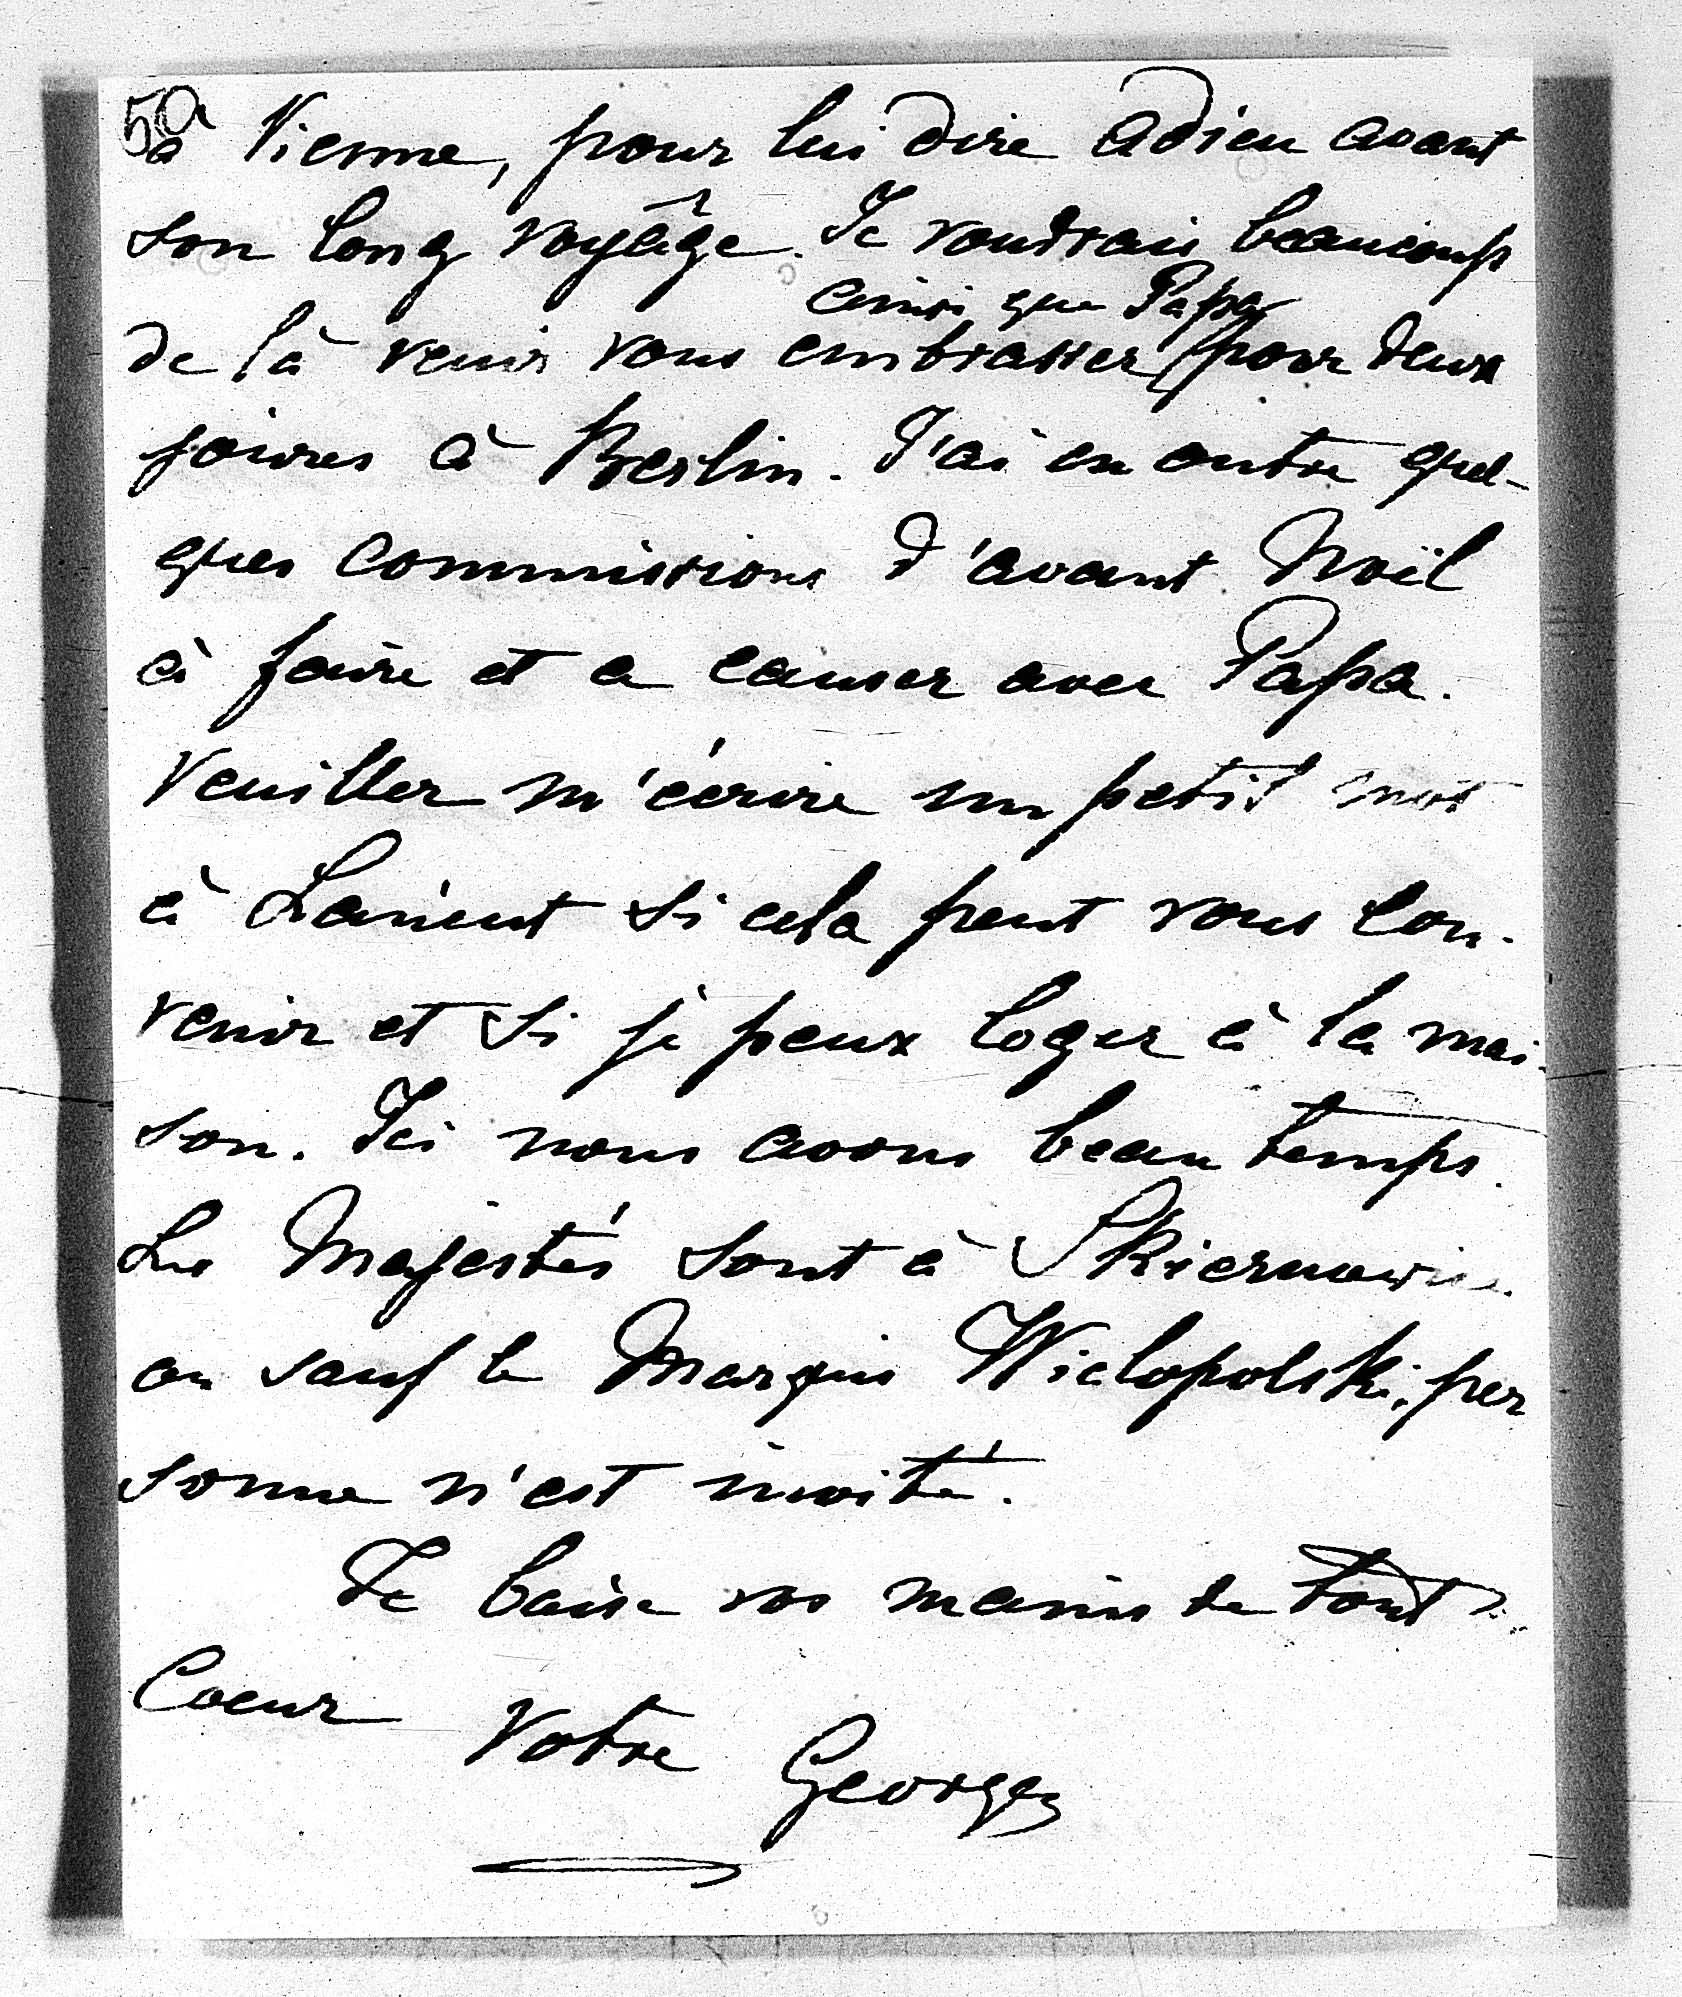 5a
à Vienne, pour lui dire adieu avant
son long voyâge. Je voudrais beaucoup
ainsi que Papa
de là venir vous embrasser pour deux
joures à Berlin. J'ai en outre quel-
ques commissions d'avant Noël
à faire et a causer avec Papa.
Veuiller m'écrire un petit mot
à Lancut si cela peut vous con-
venir et si je peux loger à la mai-
son. Ici nous avons beau temps.
Les Majestés sont à
ou sauf le Marquis Wielopolski, per
sonne n'est invité.
Je baise vos mains de tout
Coeur
Votre Georges